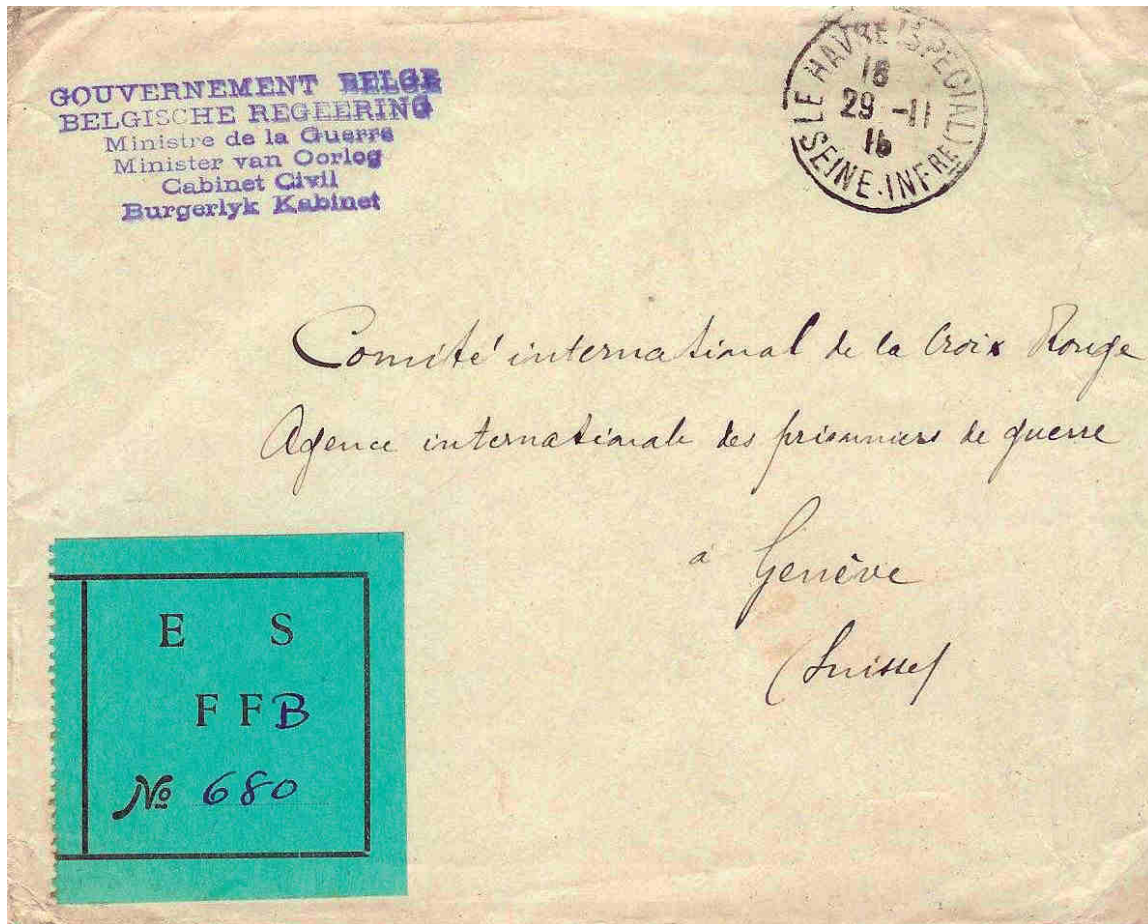 GOUVERNEMENT BELGE
BELGISCHE REGEERING
Ministre de la Guerre
Minister van Oorlog
Cabinet Civil
Burgerlyk Kabinet
LE HAVRE (SPECIAL)
16
29 -11
SEINE-INFRE
Comité international de la Croix Rouge
Agence internationale des prisonniers de guerre
à Genève
(Suisse)
E S
F F B
No 680